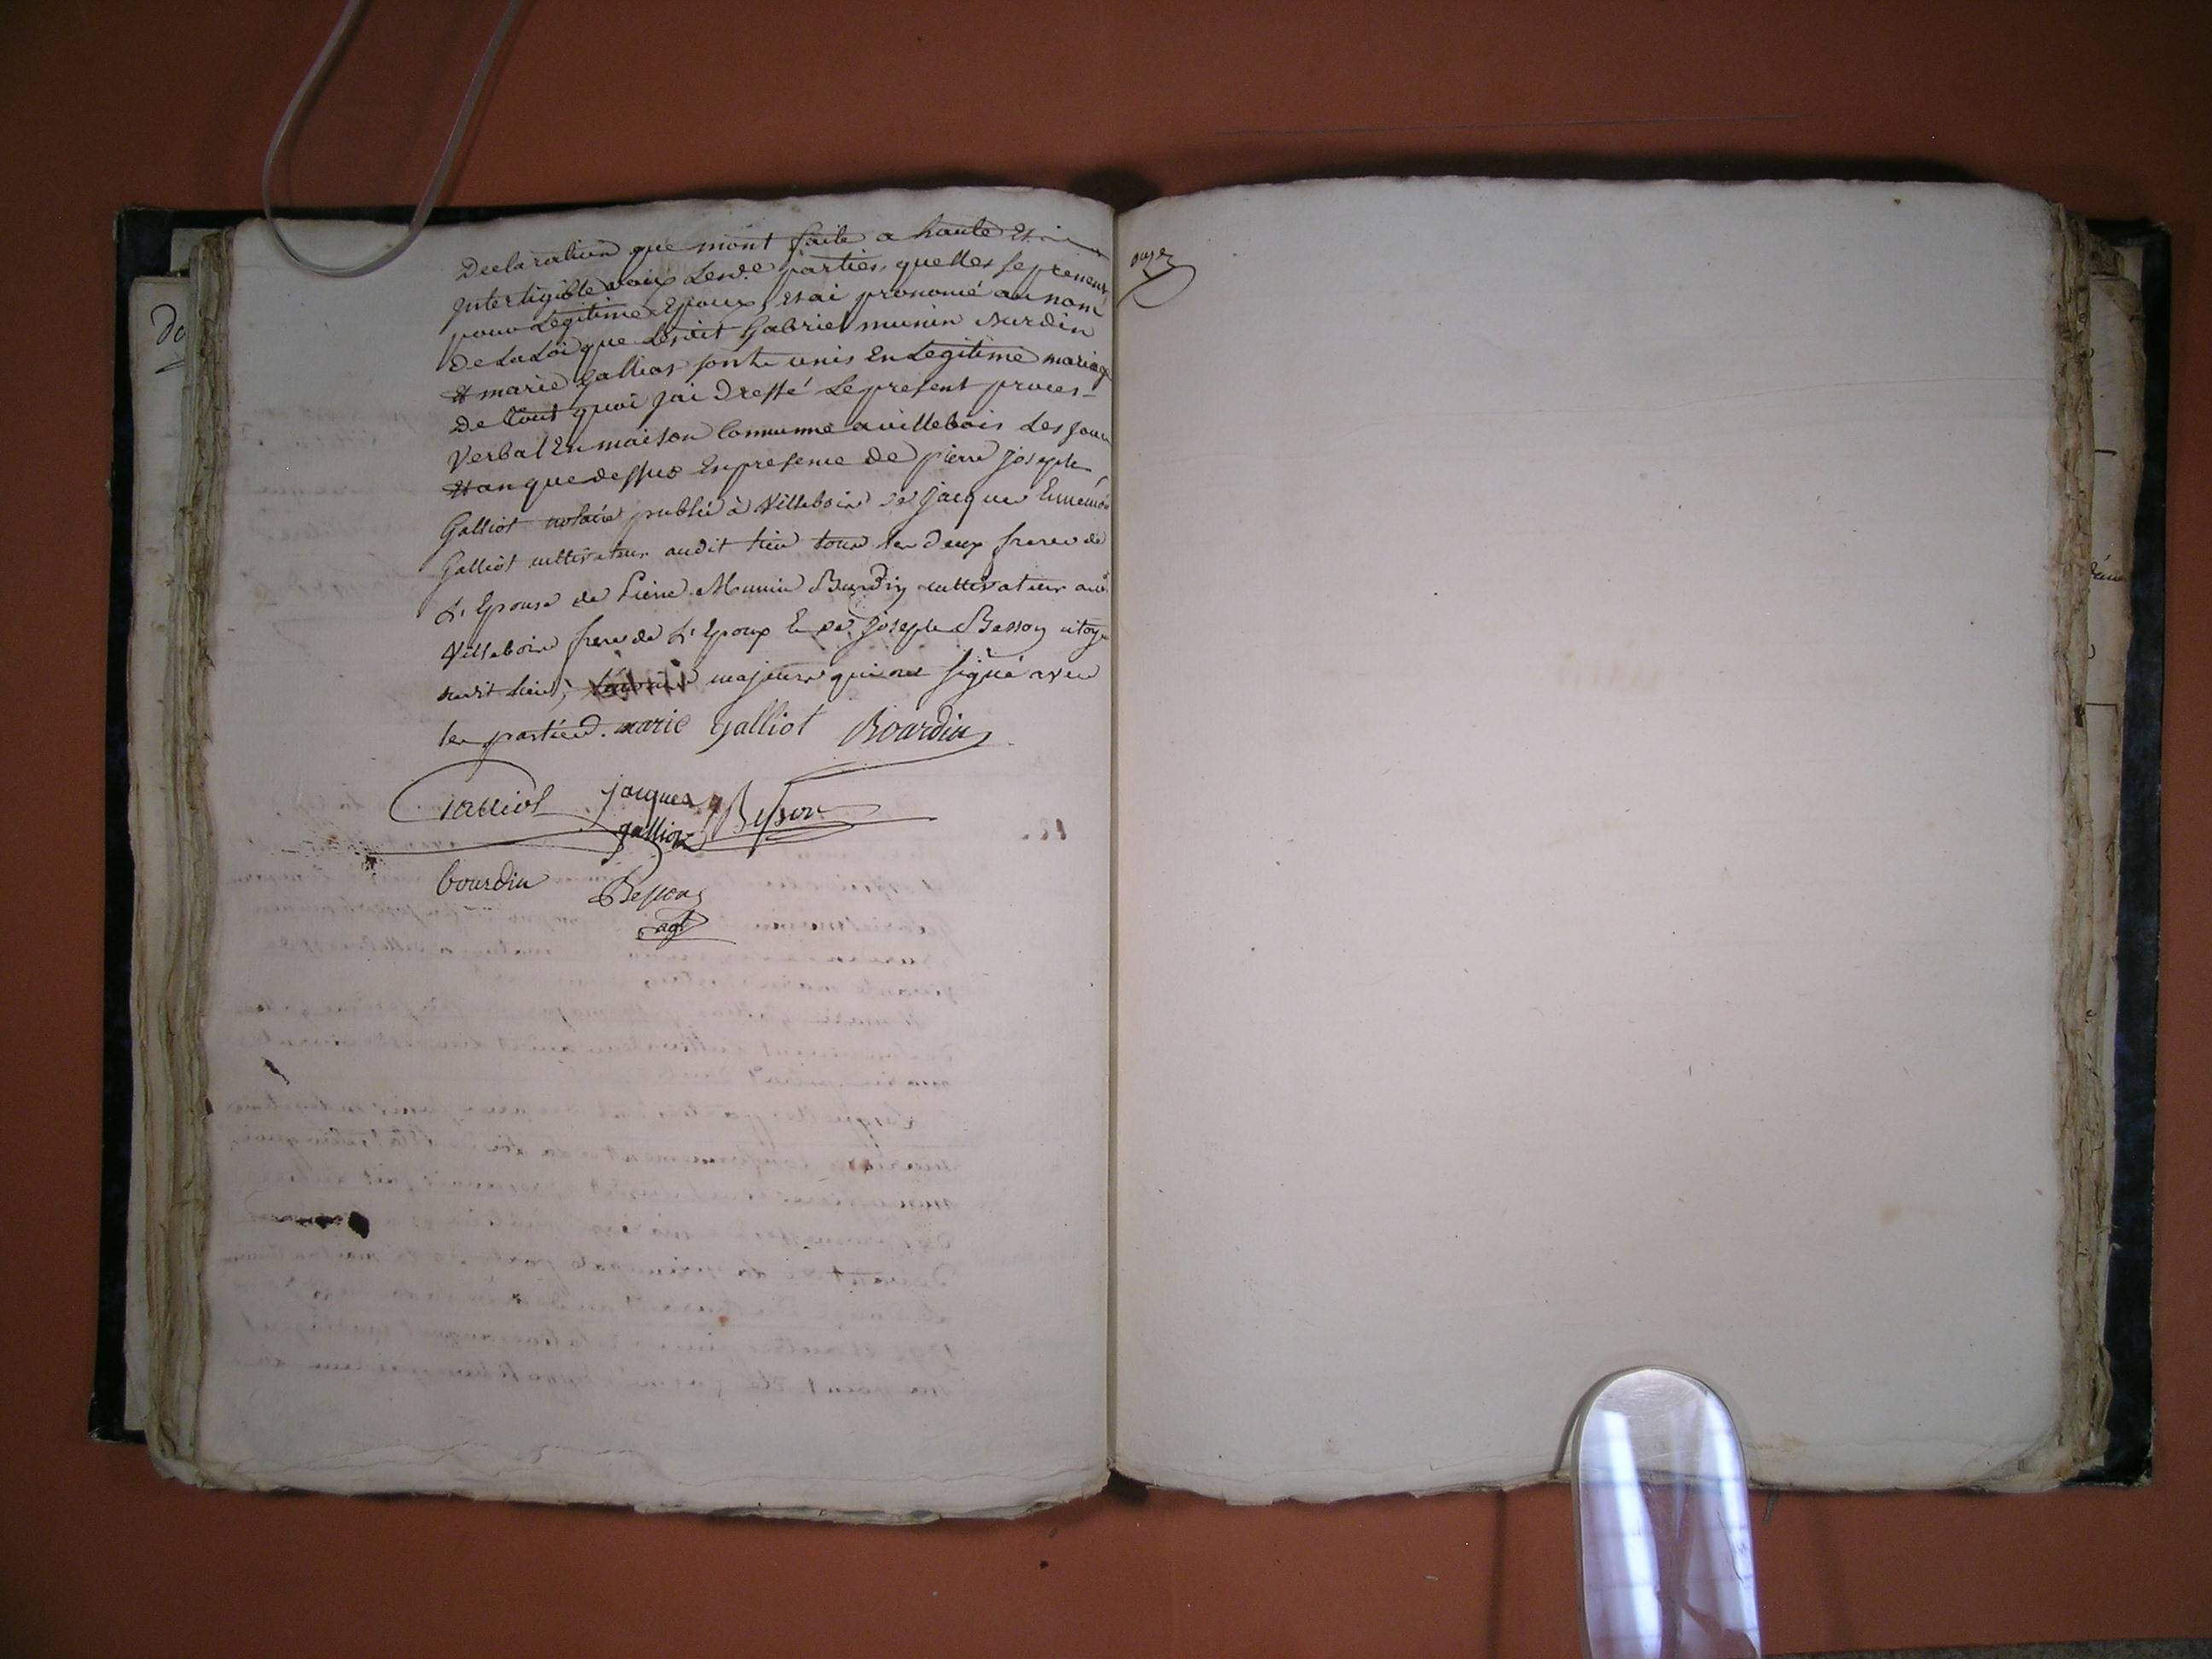 Declaration que mont faite a haute et
Interligible voix Lesd.e parties quelles se prenent
pour Legitime Epoux, et ai prononcé au nom
De La Loi que Ledit Gabriel munin Burdin
Et marie Galliot sont unis En Legitime mariage
De tout quoi jai Dressé Le present proces-
Verbal En maison Commune a villebois Les jour
Et an que dessus En presence de pierre joseph
Galliot notaire public à Villebois de jacques Ennemon
Galliot cultivateur audit lieu tous les deux freres de
L'Epouse de Pierre Munin Burdin cultivateur aud
Villebois frere de L'Epoux Et de joseph Besson citoyen
audit lieu, majeurs qui ont signé avec
les parties. marie Galliot Bourdin
Galliot jacques Besson
galliot
bourdin Besson
agt
onze
Do